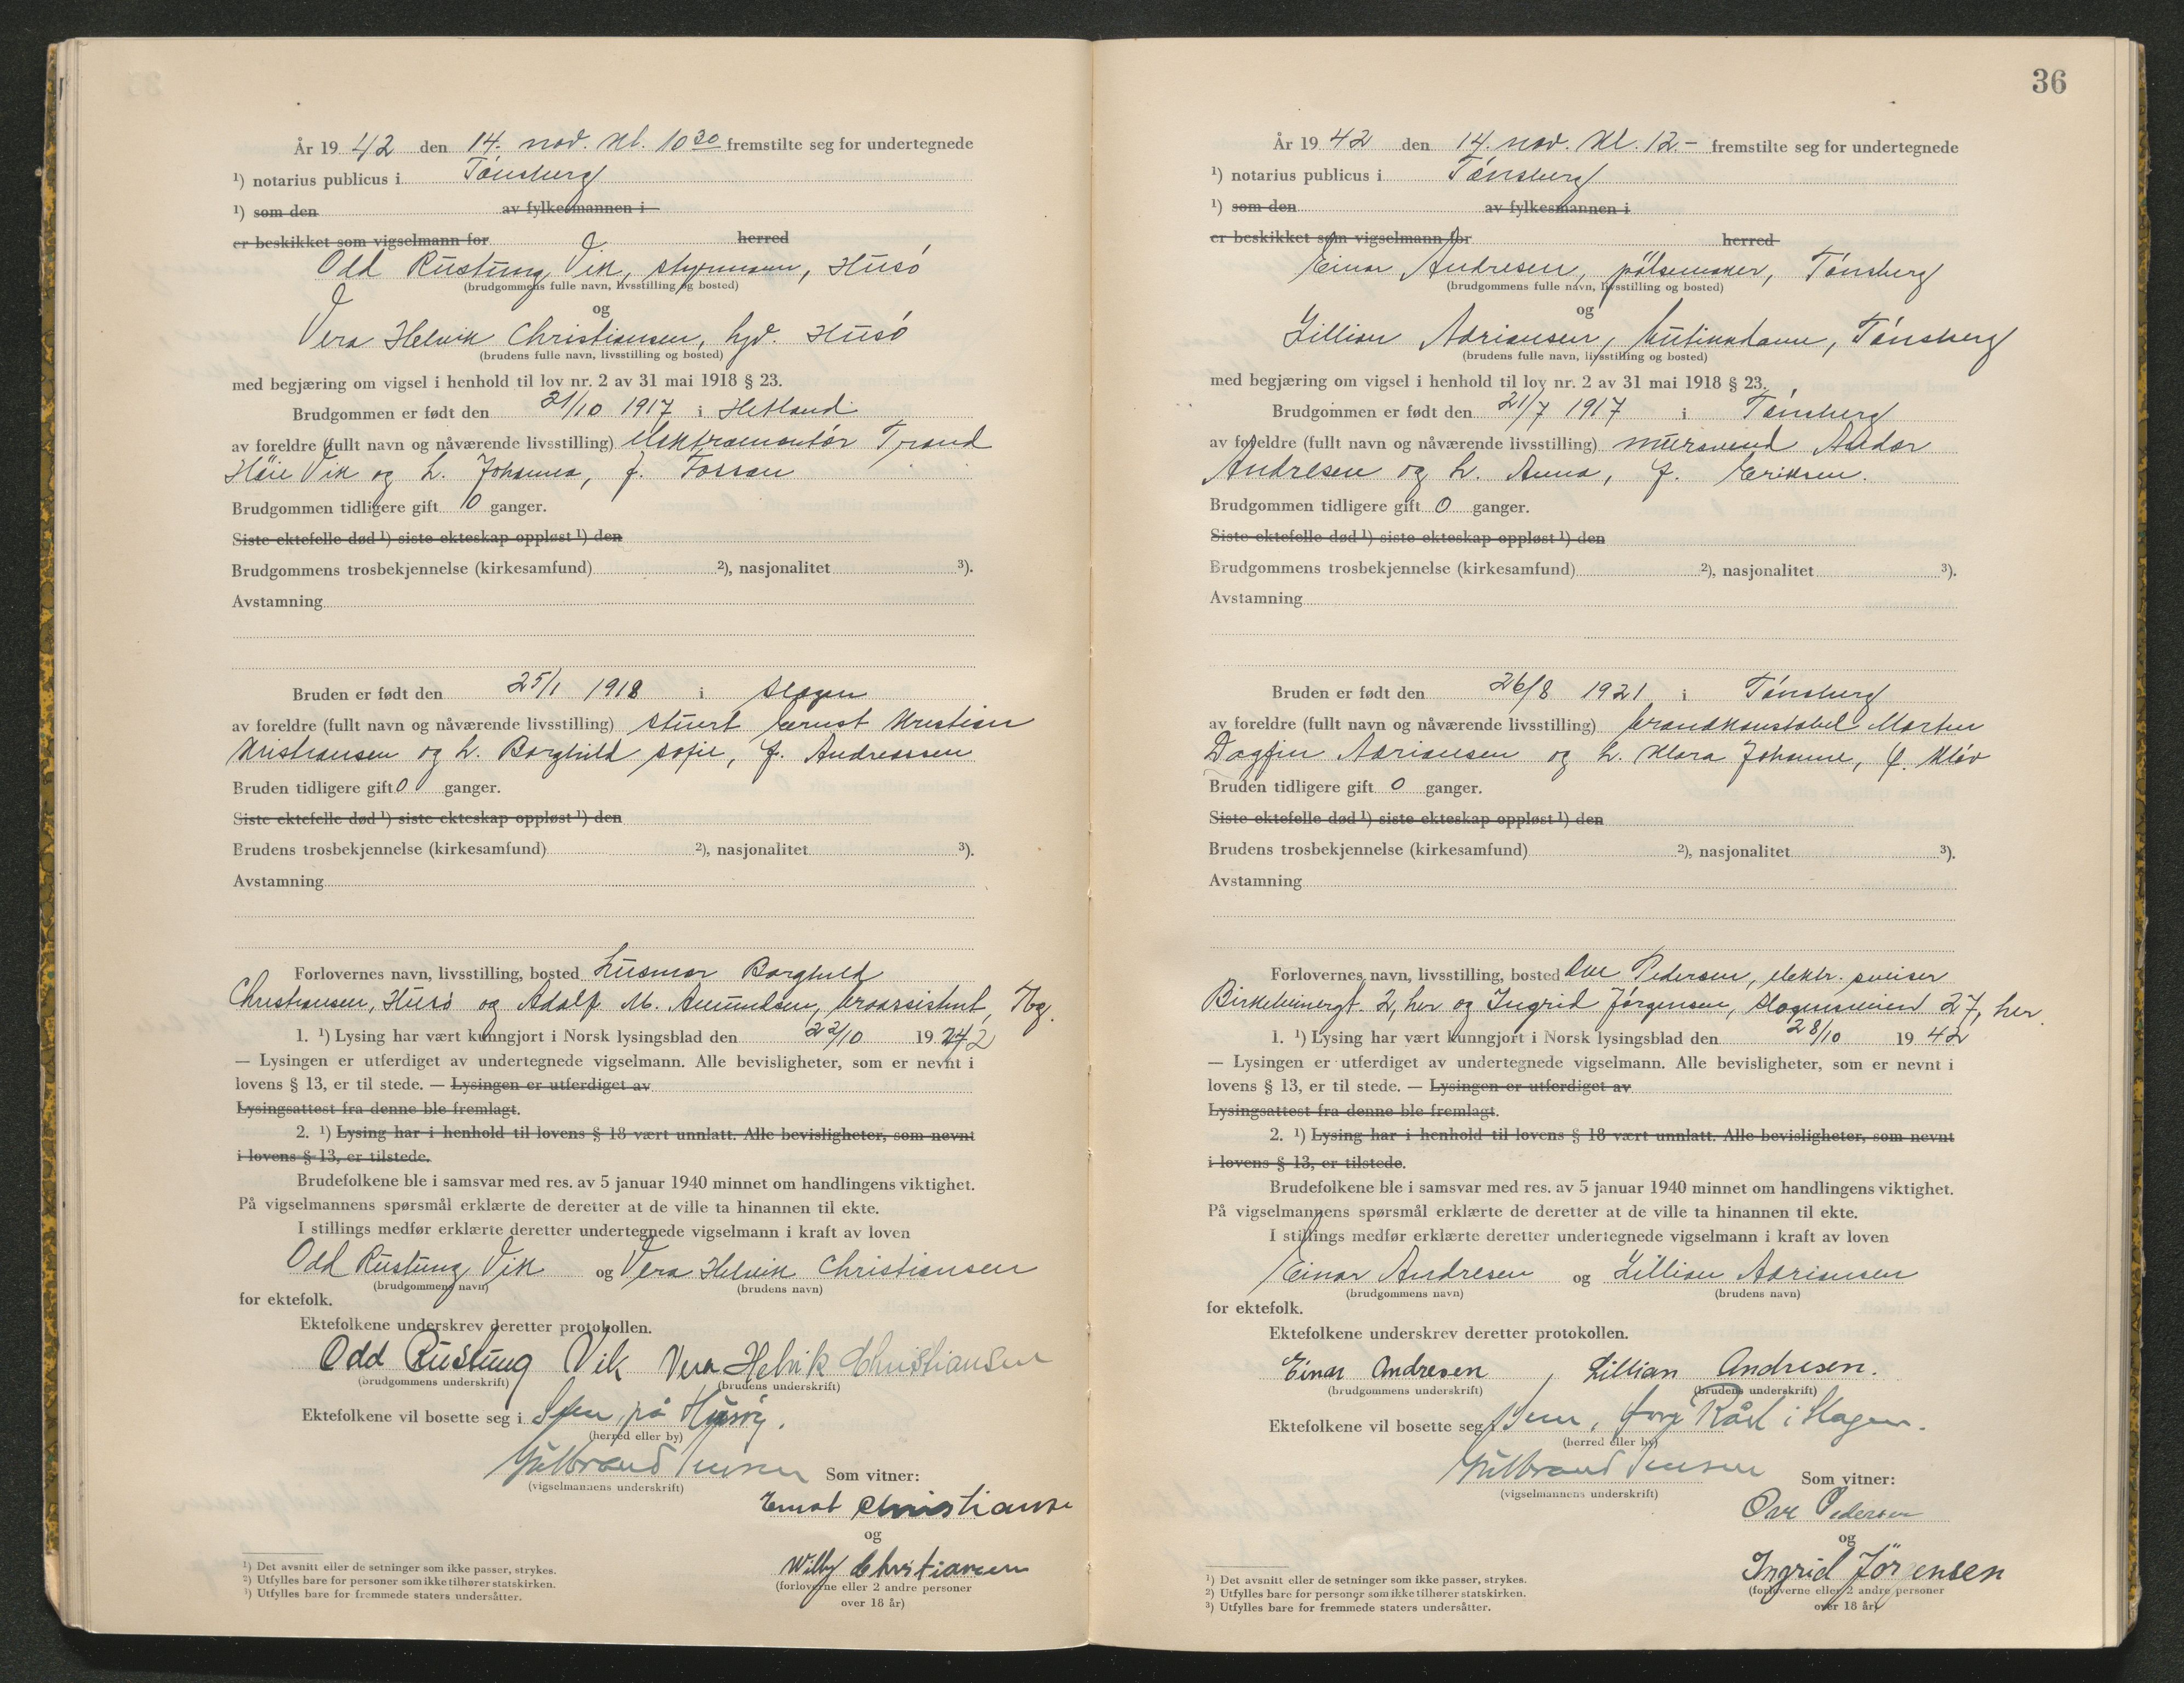 År 19 42 den 14. nov. kl. 10 30 fremstilte seg for undertegnede
¹) notarius publicus i Tønsberg
¹) som den av fylkesmannen i
er beskikket som vigselmann for herred
Odd Rustung Vik, styrmann, Husø
(brudgommens fulle navn, livsstilling og bosted)
og
Vera Helvik Christiansen, hjv. Husø
(brudens fulle navn, livsstilling og bosted)
med begjæring om vigsel i henhold til lov nr. 2 av 31 mai 1918 § 23.
Brudgommen er født den 21/10 1917 i Hetland
av foreldre (fullt navn og nåværende livsstilling) elektromontør Trond
Høie Vik og h. Johanna, f. Fossan
Brudgommen tidligere gift 0 ganger.
Siste ektefelle død ¹) siste ekteskap oppløst ¹) den
Brudgommens trosbekjennelse (kirkesamfund) ²), nasjonalitet ³).
Avstamning
Bruden er født den 25/1 1918 i Slagen
av foreldre (fullt navn og nåværende livsstilling) stuert Ernst Kristian
Kristiansen og h. Borghild Sofie, f. Andreassen
Bruden tidligere gift 0 ganger.
Siste ektefelle død ¹) siste ekteskap oppløst ¹) den
Brudens trosbekjennelse (kirkesamfund) ²), nasjonalitet ³).
Avstamning
Forlovernes navn, livsstilling, bosted husmor Borghild
Christiansen, Husø og Adolf M. Amundsen, broassistent, Tbg.
1. ¹) Lysing har vært kunngjort i Norsk lysingsblad den 22/10 19 42
— Lysingen er utferdiget av undertegnede vigselmann. Alle bevisligheter, som er nevnt i
lovens § 13, er til stede. — Lysingen er utferdiget av
Lysingsattest fra denne ble fremlagt.
2. ¹) Lysing har i henhold til lovens § 18 vært unnlatt. Alle bevisligheter, som nevnt
i lovens § 13, er tilstede.
Brudefolkene ble i samsvar med res. av 5 januar 1940 minnet om handlingens viktighet.
På vigselmannens spørsmål erklærte de deretter at de ville ta hinannen til ekte.
I stillings medfør erklærte deretter undertegnede vigselmann i kraft av loven
Odd Rustung Vik og Vera Helvik Christiansen
(brudgommens navn) (brudens navn)
for ektefolk.
Ektefolkene underskrev deretter protokollen.
Odd Rustung Vik Vera Helvik Christiansen
(brudgommens underskrift) (brudens underskrift)
Ektefolkene vil bosette seg i Sem, på Husøy.
(herred eller by)
Gulbrand Jensen
(vigselmannens underskrift)
Som vitner:
Ernst Christianse
og
Willy Christiansen
(forloverne eller 2 andre personer
over 18 år)
¹) Det avsnitt eller de setninger som ikke passer, strykes.
²) Utfylles bare for personer som ikke tilhører statskirken.
¹) Utfylles bare for fremmede staters undersåtter.
36
År 19 42 den 14. nov. kl. 12.- fremstilte seg for undertegnede
¹) notarius publicus i Tønsberg
¹) som den av fylkesmannen i
er beskikket som vigselmann for herred
Einar Andresen, pølsemaker, Tønsberg
(brudgommens fulle navn, livsstilling og bosted)
og
Lillian Adriansen, butikkdame, Tønsberg
(brudens fulle navn, livsstilling og bosted)
med begjæring om vigsel i henhold til lov nr. 2 av 31 mai 1918 § 23.
Brudgommen er født den 21/7 1917 i Tønsberg
av foreldre (fullt navn og nåværende livsstilling) mursvend Andor
Andresen og h. Anna, f. Eriksen.
Brudgommen tidligere gift 0 ganger.
Siste ektefelle død ¹) siste ekteskap oppløst ¹) den
Brudgommens trosbekjennelse (kirkesamfund) ²), nasjonalitet ³).
Avstamning
Bruden er født den 26/8 1921 i Tønsberg
av foreldre (fullt navn og nåværende livsstilling) brandkonstabel Martin
Dagfin Adriansen og h. Klara Johanne, f. Kløv
Bruden tidligere gift 0 ganger.
Siste ektefelle død ¹) siste ekteskap oppløst ¹) den
Brudens trosbekjennelse (kirkesamfund) ²), nasjonalitet ³).
Avstamning
Forlovernes navn, livsstilling, bosted Ove Pedersen, elektr. sveiser
Birkebeinergt. 2, her og Ingrid Jørgensen, Slagensveien 27, her.
1. ¹) Lysing har vært kunngjort i Norsk lysingsblad den 28/10 19 42
— Lysingen er utferdiget av undertegnede vigselmann. Alle bevisligheter, som er nevnt i
lovens § 13, er til stede. — Lysingen er utferdiget av
Lysingsattest fra denne ble fremlagt.
2. ¹) Lysing har i henhold til lovens § 18 vært unnlatt. Alle bevisligheter, som nevnt
i lovens § 13, er tilstede.
Brudefolkene ble i samsvar med res. av 5 januar 1940 minnet om handlingens viktighet.
På vigselmannens spørsmål erklærte de deretter at de ville ta hinannen til ekte.
I stillings medfør erklærte deretter undertegnede vigselmann i kraft av loven
Einar Andresen og Lillian Adriansen
(brudgommens navn) (brudens navn)
for ektefolk.
Ektefolkene underskrev deretter protokollen.
Einar Andresen, Lillian Andresen.
(brudgommens underskrift) (brudens underskrift)
Ektefolkene vil bosette seg i Sem, i Slagen.
(herred eller by)
Gulbrand Jensen
(vigselmannens underskrift)
Som vitner:
Ove Pedersen
og
Ingrid Jørgensen
(forloverne eller 2 andre personer
over 18 år)
¹) Det avsnitt eller de setninger som ikke passer, strykes.
²) Utfylles bare for personer som ikke tilhører statskirken.
³) Utfylles bare for fremmede staters undersåtter.